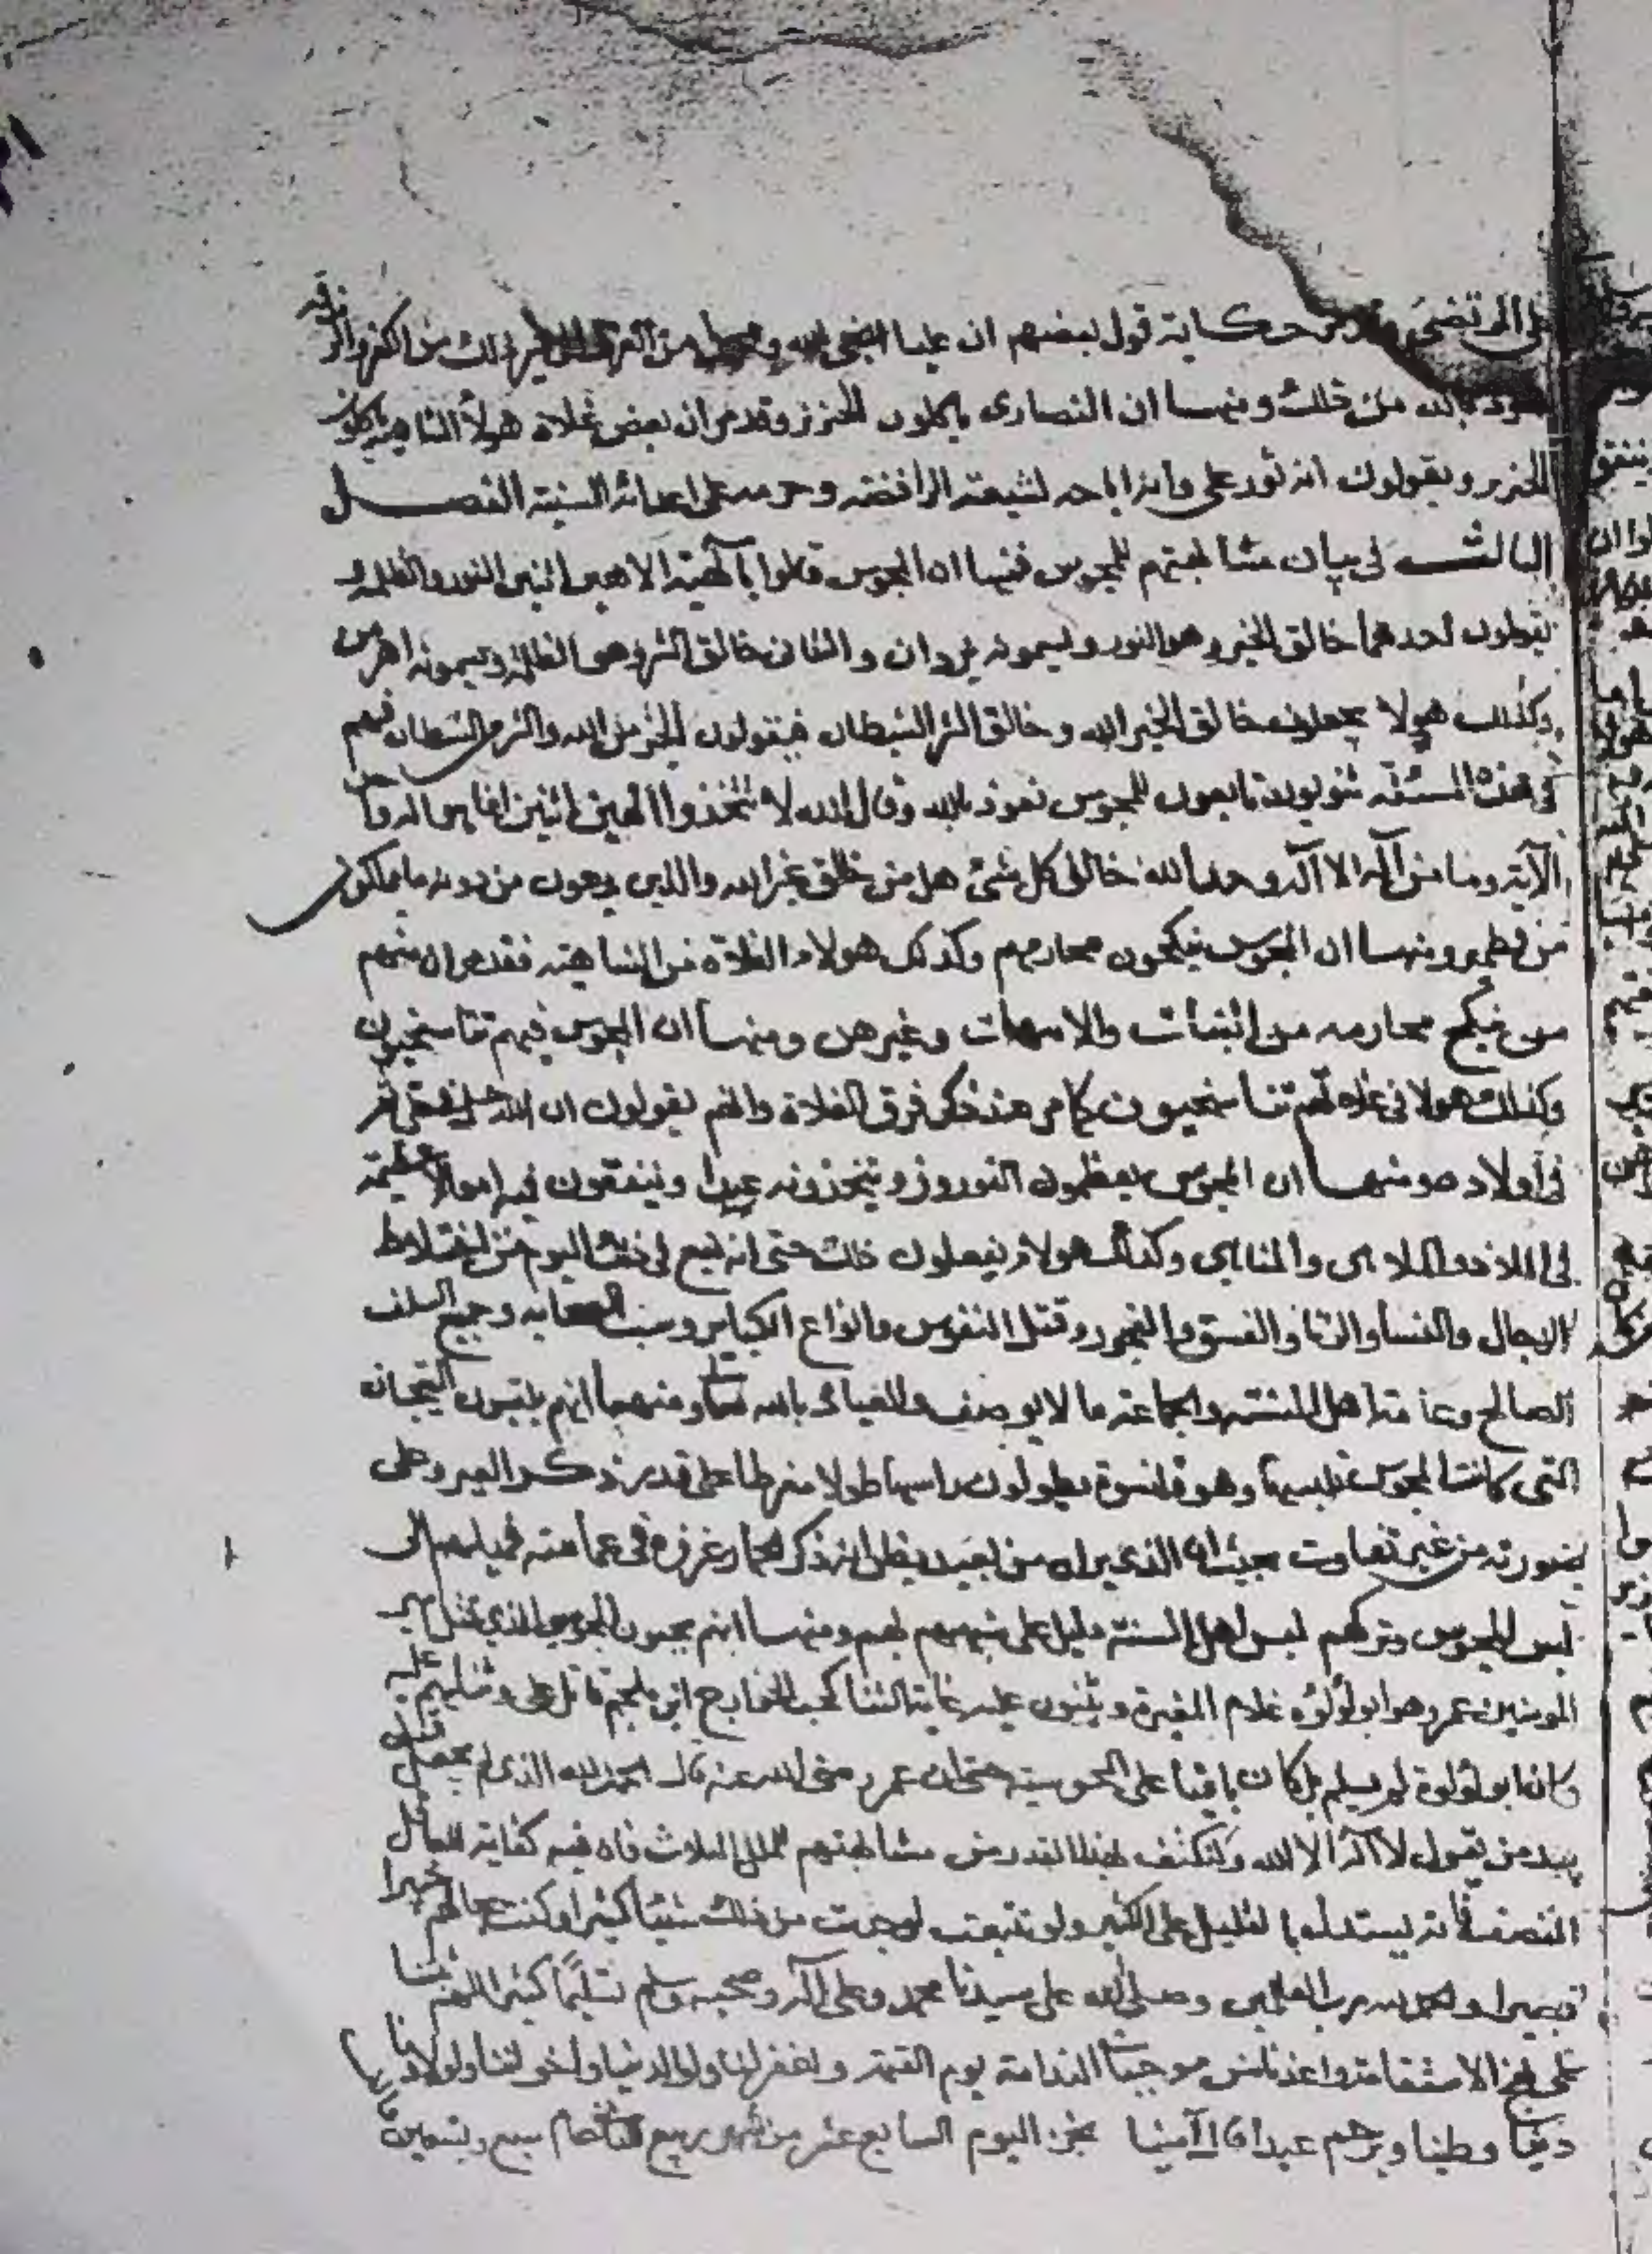 على المرتضى حكاية قول بعضهم ان عليا الله من ذلك من الكفر والزندقه
نعوذ بالله من ذلك ومنها ان النصارى ياكلون الخنزير وقد مر ان بعض غلاة هولاء الشاهية ياكلون
الخنزير ويقولون انه ثور علي وانه اباحه لشيعته الرافضه وحرمه على اعدائه السنية الفصل
الثالث في بيان مشابهتهم للمجوس فمنها ان المجوس قالوا بآلهية الاهين اثنين النور والظلمه
يقولون احدهما خالق الخير وهو النور ويسمونه يزدان والثاني خالق الشر وهى الظلمة ويسمونه اهرمن
وكذلك هولا يجعلون خالق الخير الله وخالق الشر الشيطان فيقولون الخير من الله والشر من الشيطان فهم
في هذه المسئلة ثنويون تابعون للمجوس نعوذ بالله وقال الله لا تتخذوا الهين اثنين انما هو اله واحد
الآية وما من اله الا اله واحد الله خالق كل شئ هل من خالق غير الله والذين يدعون من دونه ما يملكون
من قطمير ومنها ان المجوس ينكحون محارمهم وكذلك هولاء الغلاة من الشاهية فقد مر ان منهم
من ينكح محارمه من البنات والامهات وغيرهن ومنها ان المجوس فيهم تناسخيون
وكذلك هولا في غلاتهم تناسخيون كما مر عند ذكر فرق الغلاة وانهم يقولون ان الله
في اولاده ومنها ان المجوس يعظمون النوروز ويتخذونه عيدا وينفقون فيه اموالا عظيمة
في الملاذ والملاهى والمناهي وكذلك هولاء يفعلون ذلك حتى انه يقع في ذلك اليوم من اختلاط
الرجال والنسا والزنا والفسق والفجور وقتل النفوس وانواع الكباير وسب الصحابه وجميع السلف
الصالح وعامة اهل السنة والجماعة ما لا يوصف والعياذ بالله تعالى ومنها انهم يلبسون التيجان
التي كانت المجوس تلبسها وهو قلنسوة يطولون راسها طولا مفرطا على قدر ذكر العير وعلى
صورته من غير تفاوت بحيث ان الذي يراه من بعيد يظن انه ذكر الحمار غرزه في عمامته فميلهم الى
لبس المجوس وتركهم لبس اهل السنة دليل على شبههم لهم ومنها انهم يحبون المجوسي الذي قتل امير
المومنين عمر وهو ابو لؤلؤه غلام المغيرة ويثنون عليه غاية الثنا كحب الخوارج ابن ملجم قاتل علي وثنايهم عليه
وان ابو لؤلؤة لم يسلم بل كان باقيا على المجوسية حتى ان عمر رضي الله عنه قال الحمد لله الذي لم يجعل قتلي
بيد من يقول لا اله الا الله ولنكتف بهذا القدر من مشابهتهم للملل الثلاث فان فيه كفاية للعاقل
المنصف فانه يستدل بالقليل على الكثير ولو تتبعت لوجدت من ذلك شيئا كثيرا وكنت بحالهم خبيرا
بصيرا والحمد لله رب العالمين وصلى الله على سيدنا محمد وعلى آله وصحبه وسلم تسليما كثيرا اللهم ثبتنا
على نهج الاستقامة واعذنا من موجبات الندامة يوم القيمة واغفر لنا ولوالدينا ولاخواننا ولاولادنا
ويرحم عبدا قال آمينا نجز اليوم السابع عشر من شهر ربيع عام سبع وتسعين